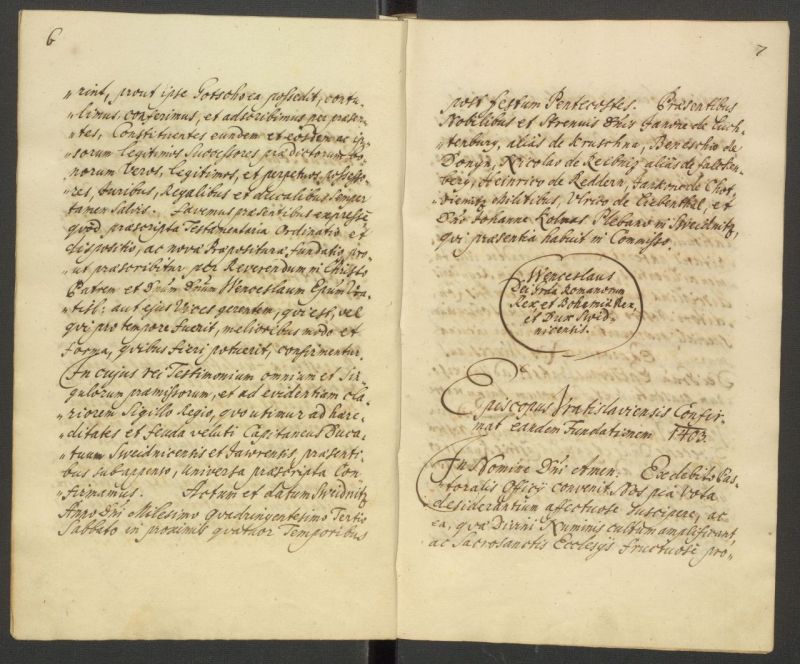 6
„rint, prout ipse Gotschoea possedit, contu„
„limus, conferimus, et adscribimus per præsen„
„tes, Constituentes eundem et eosdem ac ip„
„sorum legitimos Successores prædictorum bo„
norum Veros, legitimos, et perpetuos possesso„
„res, Juribus, Regalibus et ducalibus semper
tamen Salvis. Favemus præsentibus expresse
qvod præscripta Testamentaria Ordinatio et
dispositio, ac nova Præpositura fundatio, pro„
ut præscribitur, per Reverendum in Christo
Patrem et Dnum Dnum Wenceslaum Epum Vra„
tisl: aut ejus Vices gerentem, qvi est, vel
qvi pro tempore fuerit, melioribus modo et
forma, qvibus fieri potuerit, confirmentur.
In cujus rei Testimonium omnium et Sin„
gulorum præmissorum, et ad evidentiam cla„
„riorem Sigillo Regio, qvo utimur ad hære„
„ditates et feuda veluti Capitaneus Duca„
„tuum Sweidnicensis et Jawrensis, præsenti„
bus subappenso, universa præscripta Con„
„firmamus. Actum et datum Sweidnitz
Anno Dni Milesimo qvadringentesimo Tertio
Sabbato in proximis qvatuor Temporibus
7
post festum Pentecostes. Præsentibus
Nobilibus et Strenuis Dnis Jandre de Luch„
tenburg, aliàs de Kruschna, Beneschio de
Donyn, Nicolao de Reibnig aliàs de falcken„
berg, Heinrico de Reddern, Jankone de Chot„
diemitz militibus, Vlrico de Liebenthal, et
Dno Johanne Kolmas Plebano in Sweidnitz,
qvi præsentia habuit in Commisso.
Wenceslaus
Dei Gratia Romanorum
Rex et Bohemiæ Rex,
et Dux Swid„
nicensis.
Episcopus Vratislaviensis Confir„
mat eandem Fundationem 1403.
In Nomine Dni Amen. Ex debito Pas„
toralis Officij convenit Nos pia Vota
desiderantium affectuose suscipere, ac
ea, qvæ Divini Numinis cultum amplificant,
ac Sacrosanctis Ecclesijs fructuosè pro„